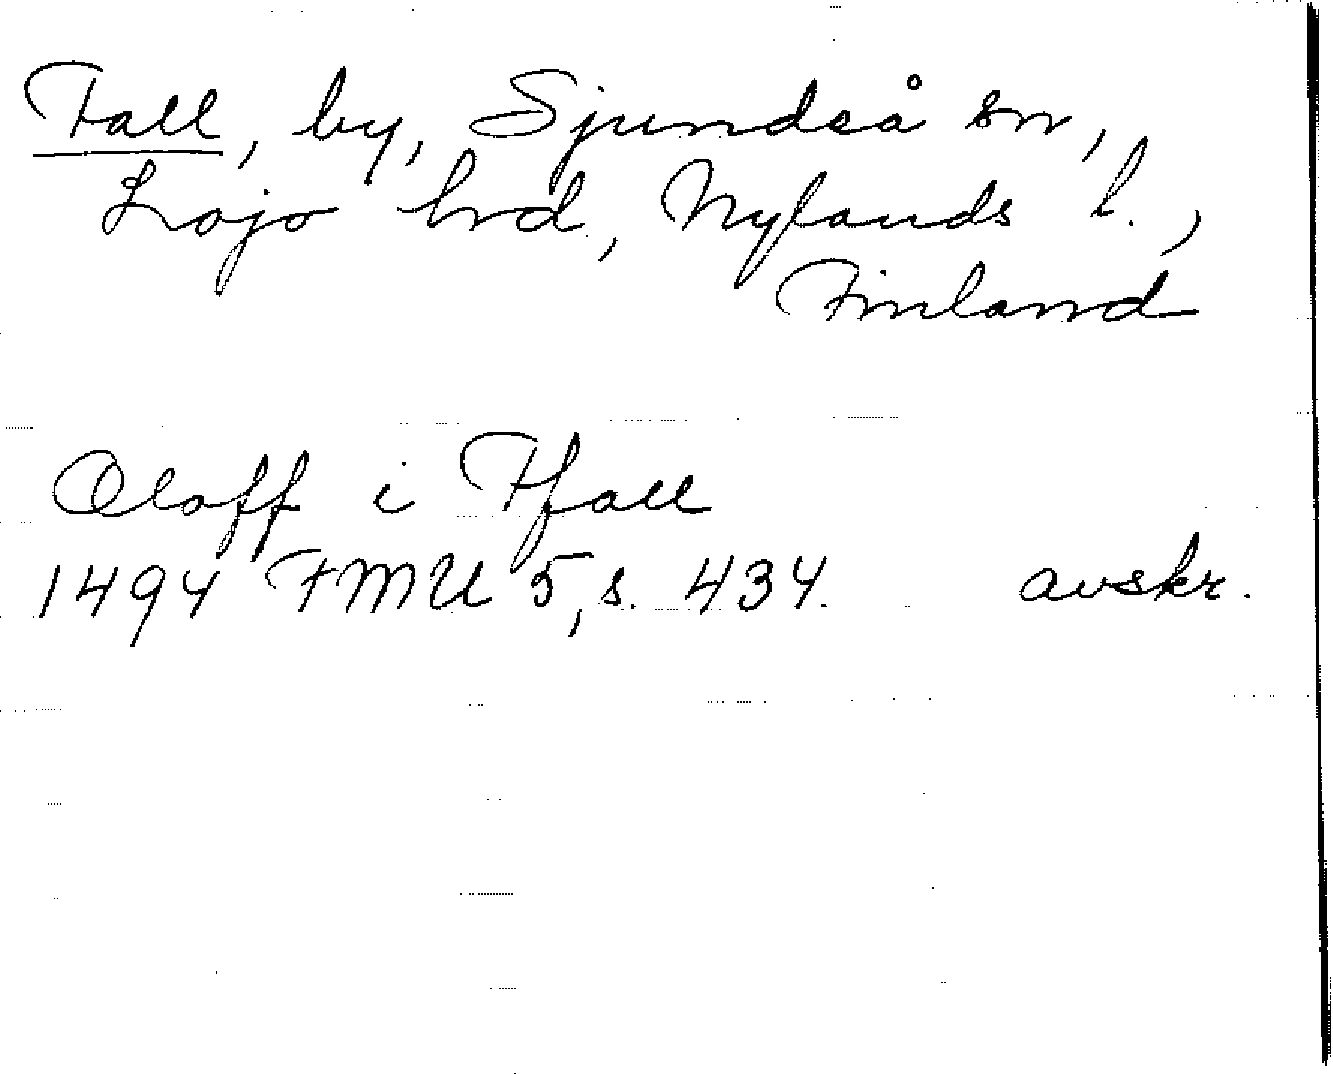 Fall, by, Sjundeå sn,
Lojo hrd, Nylands l.,
Finland
Oloff i Ffall
1494 FMU 5, s. 434. avskr.